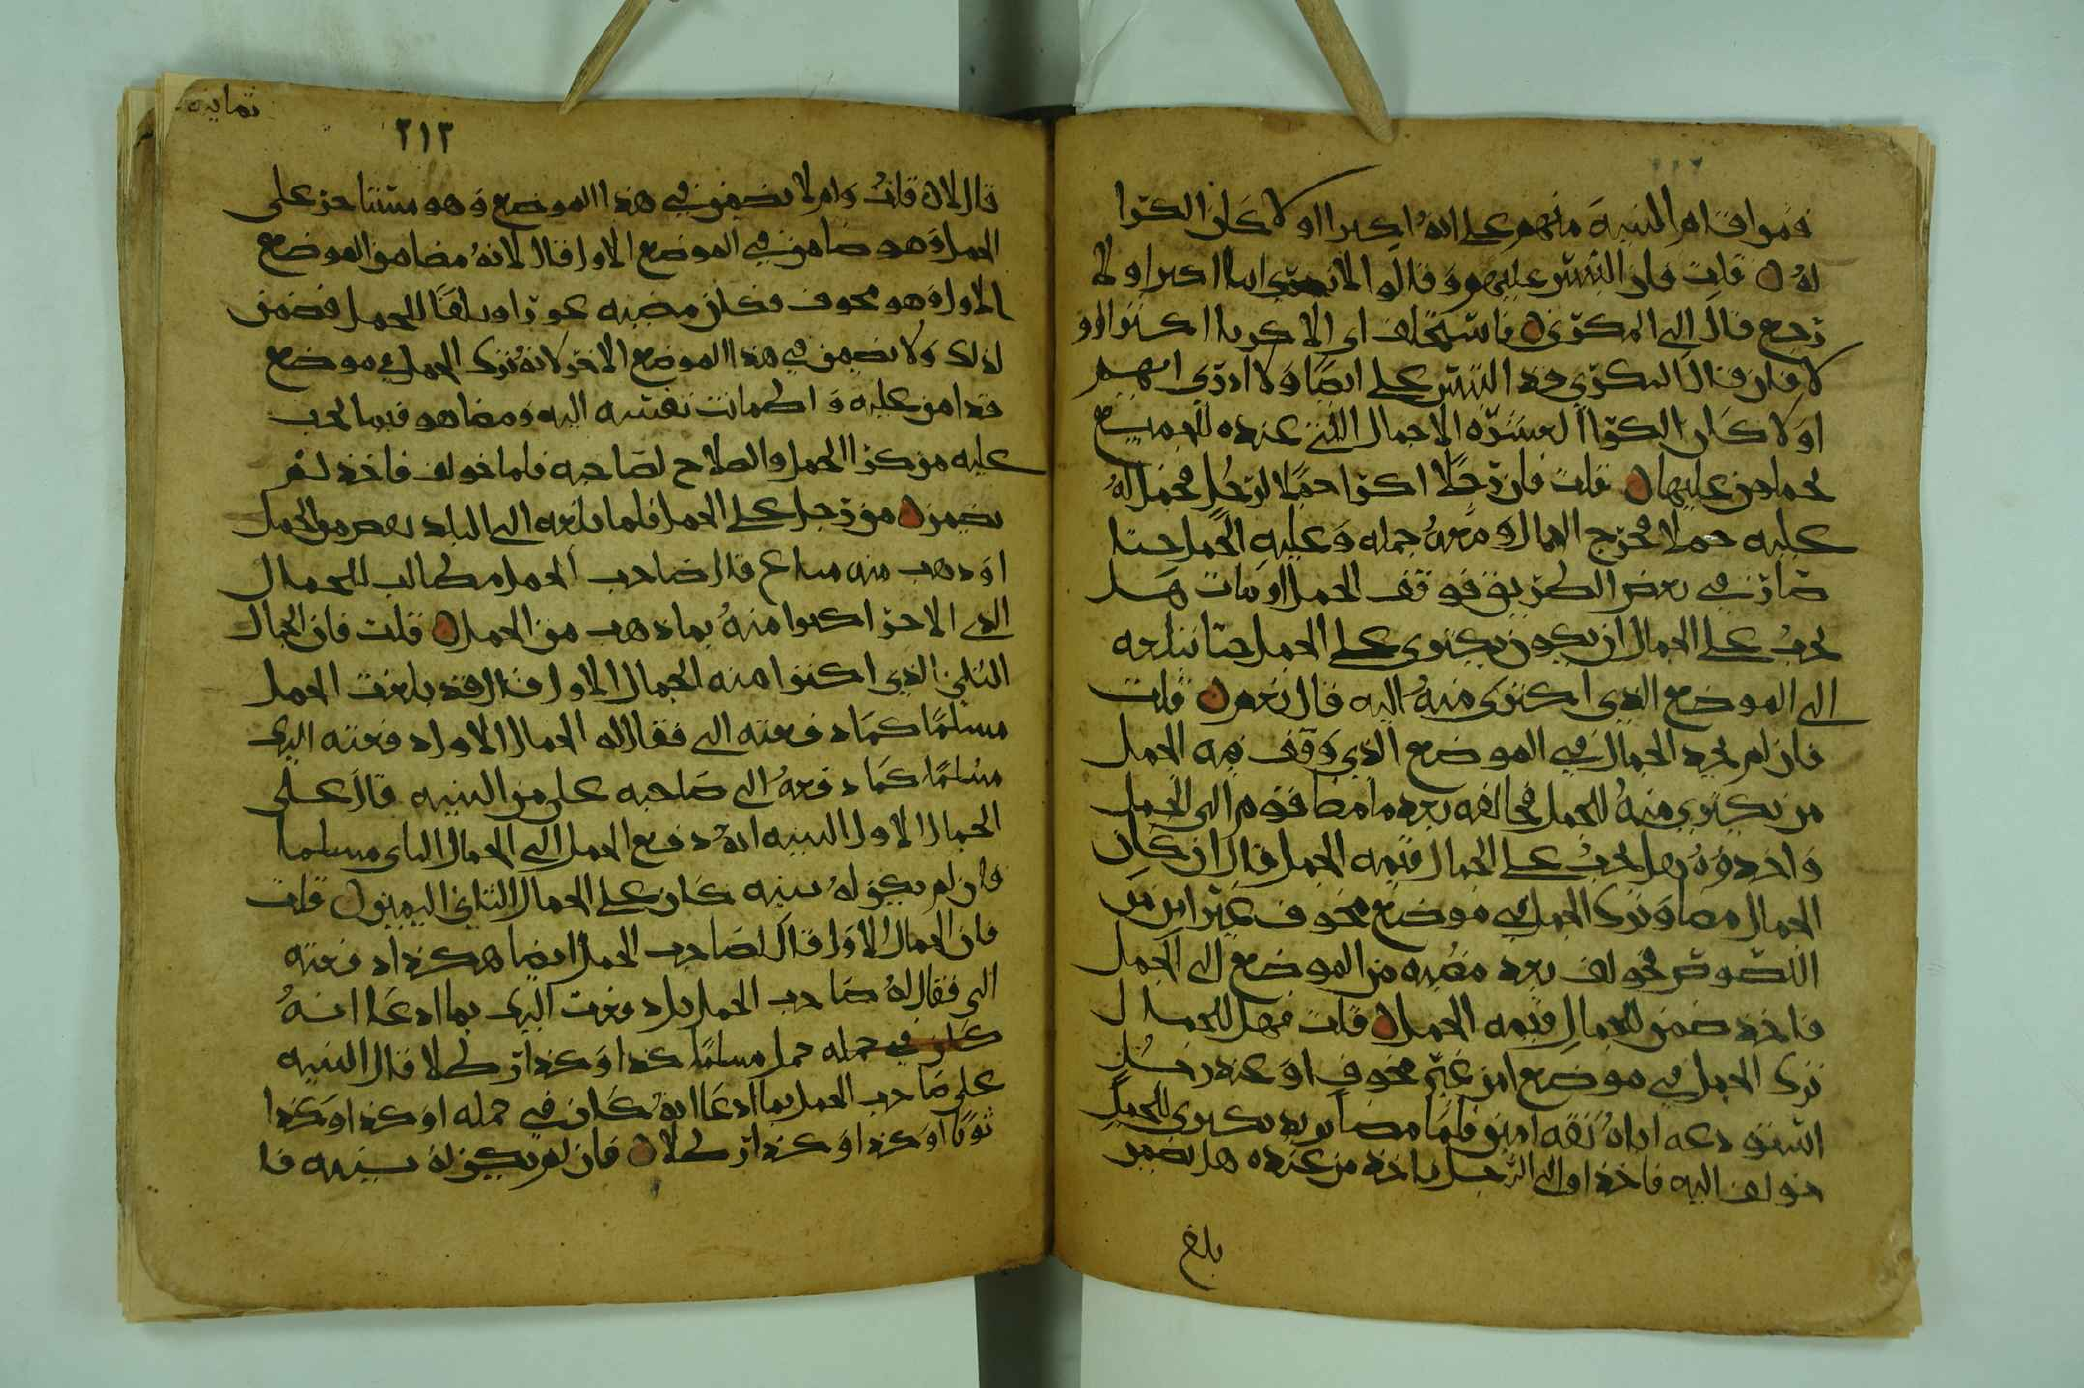 فمن اقام البينه منهم على انه اكترا اولا كان الكرا
له قلت فان التبس عليهم وقالوا لا ندري اينا اكترا اولا
رجع قال الى المكري فاستحلف اي الاكريا اكترا اولا
لا فان قال المكري قد التبس علي ايضا ولا ادري ايهم
اولا كان الكرا لعشرة الاحمال التي عنده للجميع
يحملهن عليها قلت فان رجلا اكترا جملا لرجل يحمل له
عليه حملا فخرج الجمال ومعه جمله وعليه الحمل حتا
صار في بعض الطريق فوقف الجمل او مات هل
يجب على الجمال ان يكون يكتري على الحمل حتا يبلغه
الى الموضع الذي اكترى منه اليه قال نعم قلت
فان لم يجد الجمال في الموضع الذي وقف فيه الجمل
من يكتري منه للحمل فخالفه بعد ما مضا قوم الى الحمل
واخذوه هل يجب على الجمال قيمه الحمل قال ان كان
الجمال مضا وترك الحمل في موضع مخوف غير امن من
اللصوص فخولف بعد مضيه من الموضع الى الحمل
فاخذ ضمن الجمال قيمه الحمل قلت فهل للجمال
ترك الحمل في موضع امن غير مخوف او عند رجل
استودعه اياه ثقه امين فلما مضا يريد يكتري للحمل
خولف اليه فاخذ او الى الرجل فاخذ من عنده هل يضمن
بلغ
ثمانيه
٢١٣
قال لا قلت ولم لا يضمن في هذا الموضع وهو مستاجر على
الحمل وهو ضامن في الموضع الاول قال لانه مضا من الموضع
الاول وهو مخوف فكان مضيه عورا وتلفا للحمل فضمن
لذلك ولا يضمن في هذا الموضع الاخر لانه ترك الحمل في موضع
قد امن عليه واطمانت نفسه اليه ومضا هو فيما يجب
عليه من كرا الحمل والصلاح لصاحبه فلما خولف فاخذ لم
يضمن من رجل على الحمل فلما بلغه الى البلد نقص من الحمل
او ذهب منه متاع قال صاحب الحمل مطالب للجمال
الذي الاخر اكتروا منه بما ذهب من الحمل قلت فان الجمال
الثاني الذي اكترا منه الجمال الاول قال قد بلغت الحمل
مسلما كما دفعته الي فقال له الجمال الاول دفعته اليك
مسلما كما دفعه الى صاحبه على من البينه قال على
الجمال الاول البينه انه دفع الحمل الى الجمال الثاني مسلما
فان لم يكن له بينه كان على الجمال الثاني اليمين قلت
فان الجمال الاول قال لصاحب الحمل ايضا هكذا دفعته
الي فقال له صاحب الحمل بل دفعت اليك بما ادعا انه
كان في حمله حمل مسلما كذا وكذا رطلا قال البينه
على صاحب الحمل بما ادعا انه كان في حمله او كذا او كذا
ثوبا او كذا او كذا رطلا فان لم يكن له بينه فا